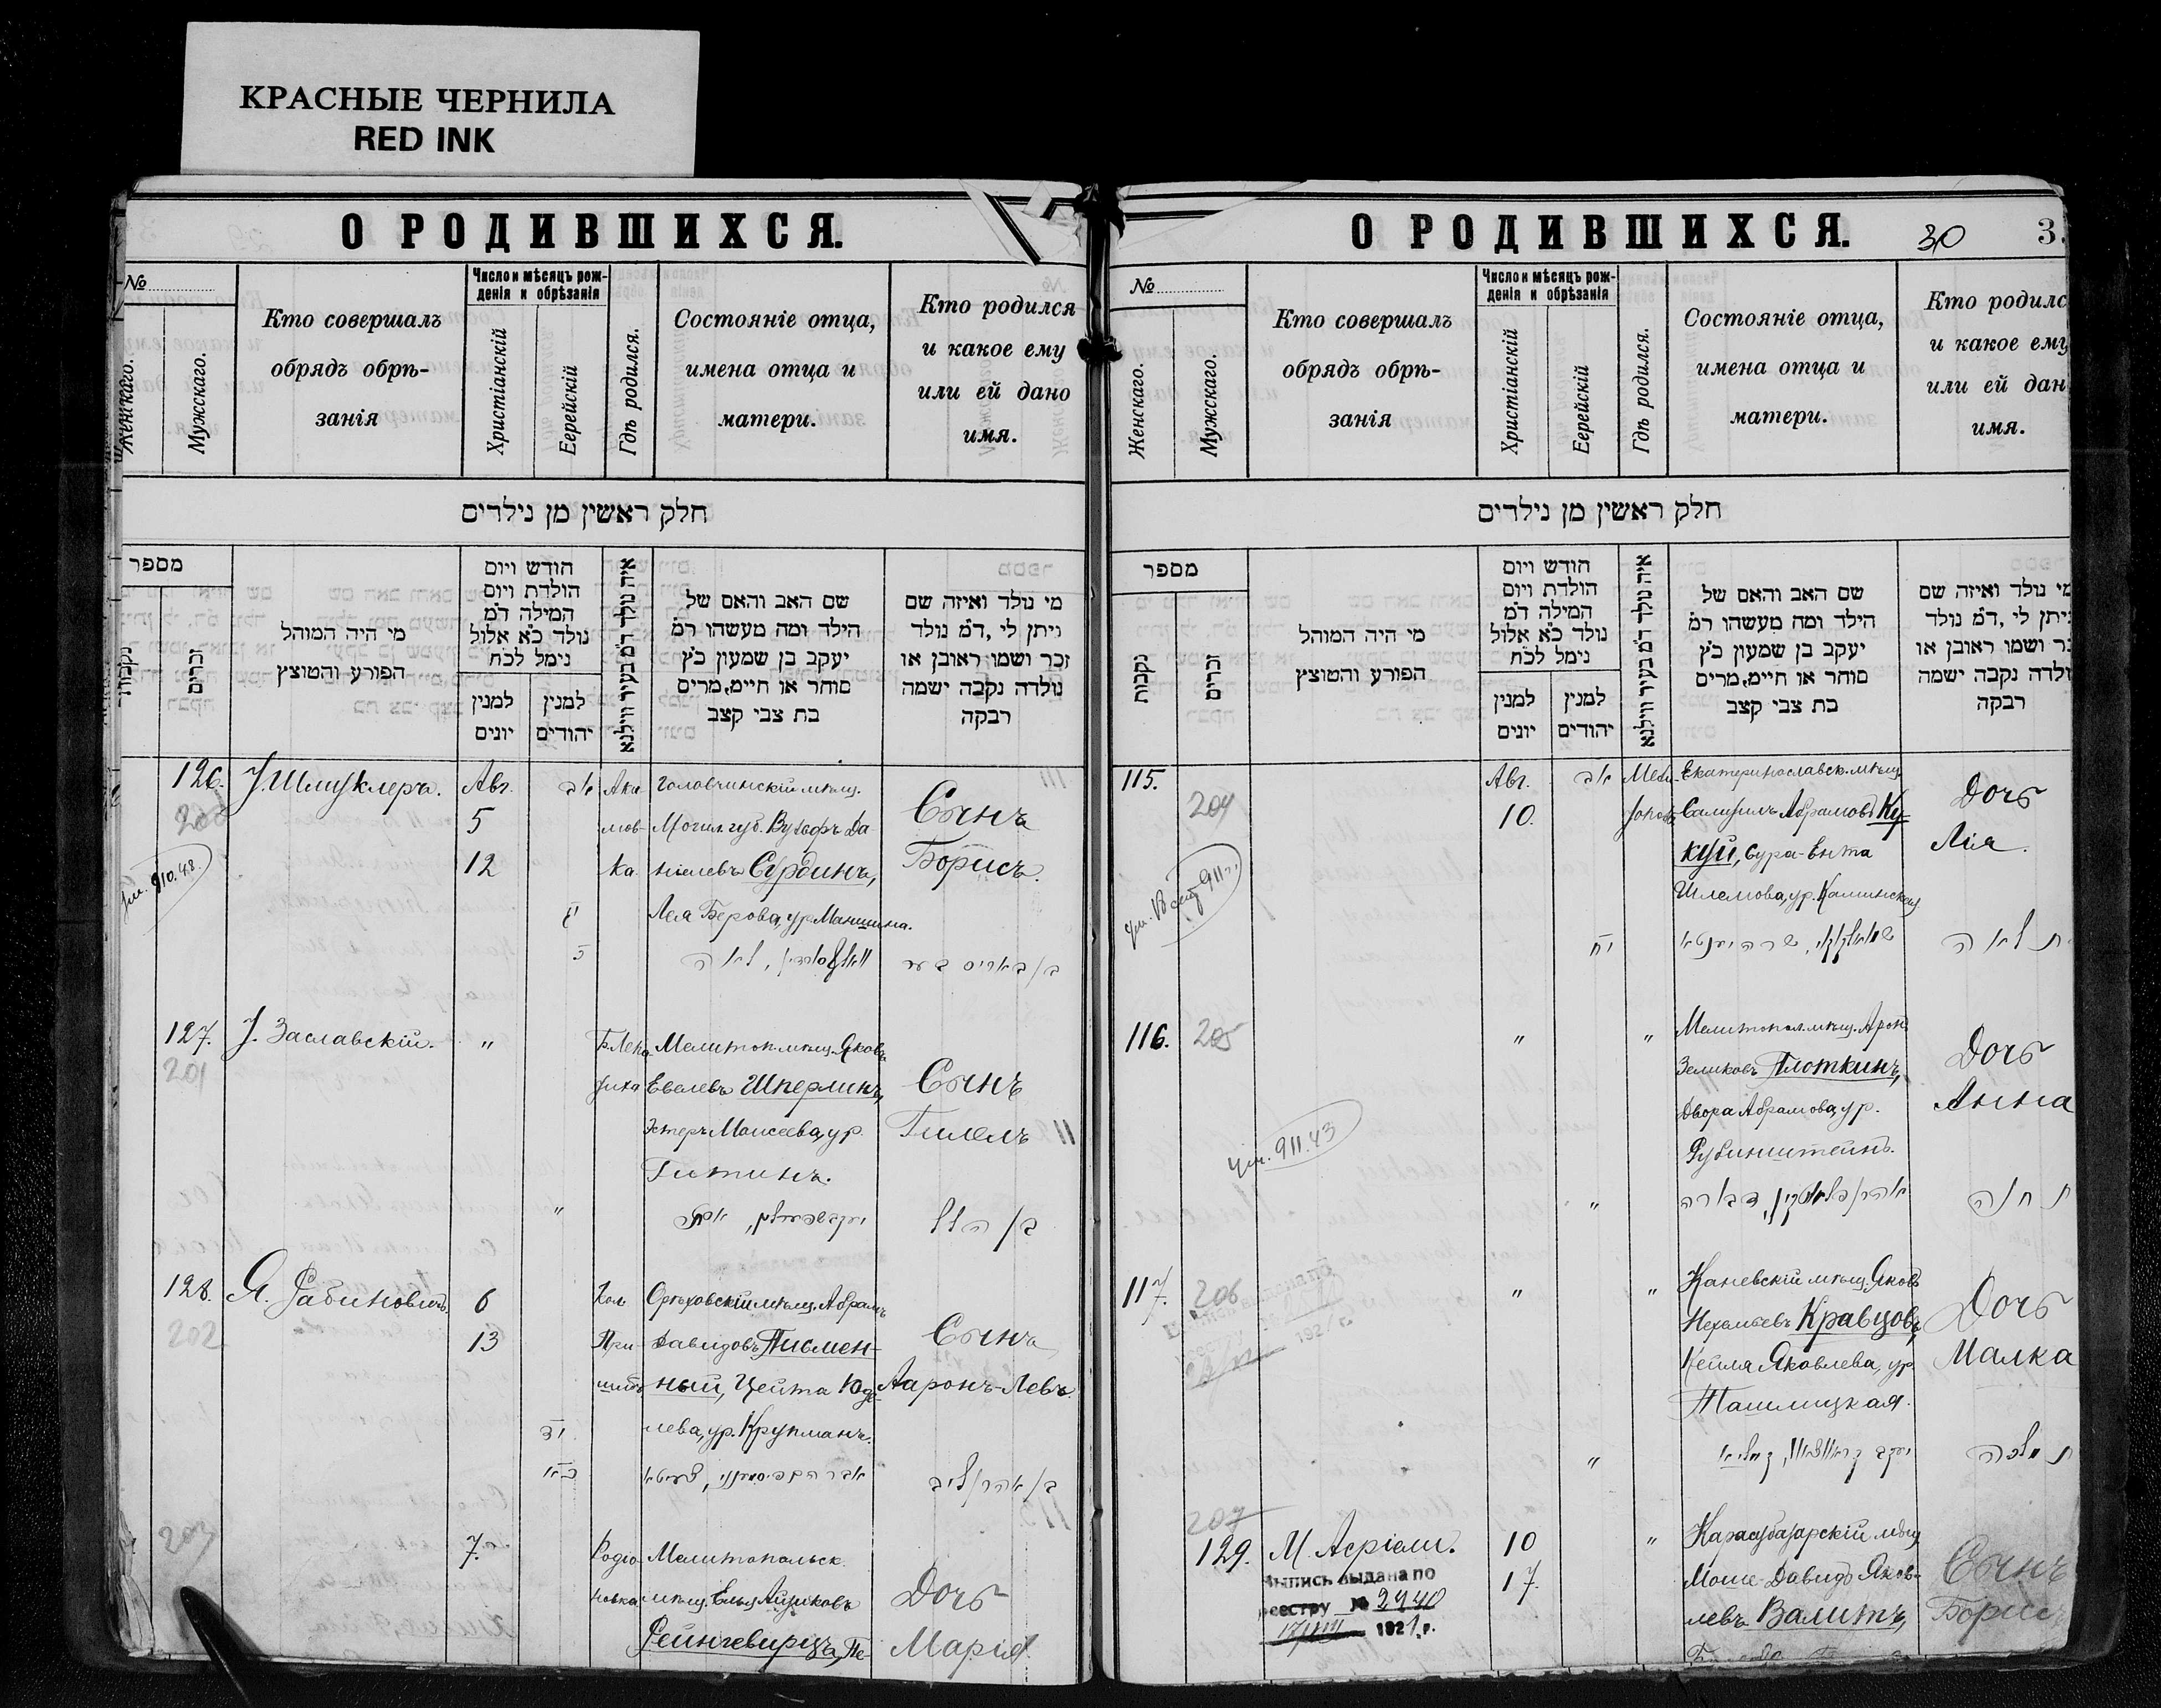 КРАСНЫЕ ЧЕРНИЛА
RED INK
О РОДИВШИХСЯ.
№
Женскаго.
Мужскаго.
Кто совершалъ
обрядъ обрѣ-
занія
Число и мѣсяцъ рож-
денія и обрѣзанія
Христіанскій
Еерейскій
Гдѣ родился.
Состояніе отца,
имена отца и
матери.
Кто родился
и какое ему
или ей дано
имя.
חלק ראשין מן נילדים
מספר
נקבות
זכרים
מי היה המוהל
הפורע והטוצץ
חודש ויום
הולדת ויום
המילה ד׳מ
נולד כ׳א אלול
נימל לכ׳ח
למנין
יונים
למנין
יהודים
איה נולד ד׳מ בעיר ווילנא
שם האב והאם של
הילד ומה מעשהו ד׳מ
יעקב בן שמעון כ׳ץ
סוחר או חיים, מרים
בת צבי קצב
מי נולד ואיזה שם
ניתן לי, ד׳מ נולד
זכר ושמו ראובן או
נולדה נקבה ישמה
רבקה
126.
200
Авг.
5
12
אב
Ака
мов-
ка
Головчинскій мѣщ.
Могил. губ. Вульфъ Да
ніелевъ Сурдинъ,
Лея Берова, ур. Маншина.
Сынъ
Борисъ.
910.48.
127.
201
З. Заславскій.
"
Б. Лепа
тиха
Мелитоп. мѣщ. Яковъ
Евелевъ Шперлинъ,
Эстеръ Моисеева, ур.
Гитинъ.
Сынъ
Гилелъ
"
בן הלל
128.
202
Я. Рабиновичъ
6
13
Кол
При
шибъ
Орѣховскій мѣщ. Абрамъ
Давидовъ Письмен-
ный, Цейта Юде-
лева, ур. Крупманъ.
Сынъ
Ааронъ-Левъ.
יד
כא
בן אהרן ליב
203
7.
Родіо
новка
Мелитопольск.
мѣщ. Ельяшъ Айзиковъ
Рейнгевирцъ, Пе-
Дочь
Марія
О РОДИВШИХСЯ.
30
3.
№
Женскаго.
Мужскаго.
Кто совершалъ
обрядъ обрѣ-
занія
Число и мѣсяцъ рож-
денія и обрѣзанія
Христіанскій
Еерейскій
Гдѣ родился.
Состояніе отца,
имена отца и
матери.
Кто родилс
и какое ему
или ей дан
имя.
חלק ראשין מן נילדים
מספר
נקבות
זכרים
מי היה המוהל
הפורע והטוצץ
חודש ויום
הולדת ויום
המילה ד׳מ
נולד כ׳א אלול
נימל לכ׳ח
למנין
יונים
למנין
יהודים
איה נולד ד׳מ בעיר ווילנא
שם האב והאם של
הילד ומה מעשהו ד׳מ
יעקב בן שמעון כ׳ץ
סוחר או חיים, מרים
בת צבי קצב
מי נולד ואיזה שם
ניתן לי, ד׳מ נולד
כר ושמו ראובן או
ולדה נקבה ישמה
רבקה
115.
204
Авг.
10.
אב
Мели-
тополь
Екатеринославск. мѣщ.
Самуилъ Абрамовъ Ку-
куй, Сура-Ента
Шлемова, ур. Каминская
Дочь
Лія.
יח
ת לאה
116.
205
"
"
Мелитопол. мѣщ. Аронъ
Зеликовъ Плоткинъ,
Двора Абрамова, ур.
Рубинштейнъ.
Дочь
Анна
911.43
"
אהרן פלאטקין, דבורה
ת חנה
117.
206
"
"
Каневскій мѣщ. Яковъ
Нехамьевъ Кравцовъ,
Кейла Яковлева, ур.
Ташлицкая.
Дочь
Малка
192 г.
"
ת מלכה
207
129.
М. Асріели.
10
17.
"
Карасубазарскій мѣщ.
Моше-Давидъ Яков-
левъ Валитъ,
Сынъ
Борис
Выпись выдана по
реестру № 2940
1921 г.